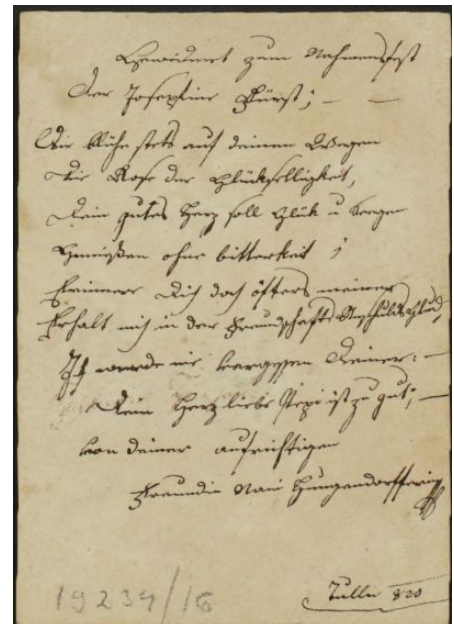 Gewidmet zum Nahmensfest
der Josephine Fürst; — —
Dir blühe stets auf deinen Weegen
die Rose der Glükselligkeit,
Dein gutes Herz soll Glük u Seegen
Genüßen ohne bitterkeit ;
Erinnere Dich doch öfters meiner
Erhalt mich in der Freundschafts
Ich werde nie vergessen Deiner: —
Dein Herz liebe Pepi ist zu gut; —
von deiner aufrichtigen
Freundin Nani
Tulln 820
19239/16